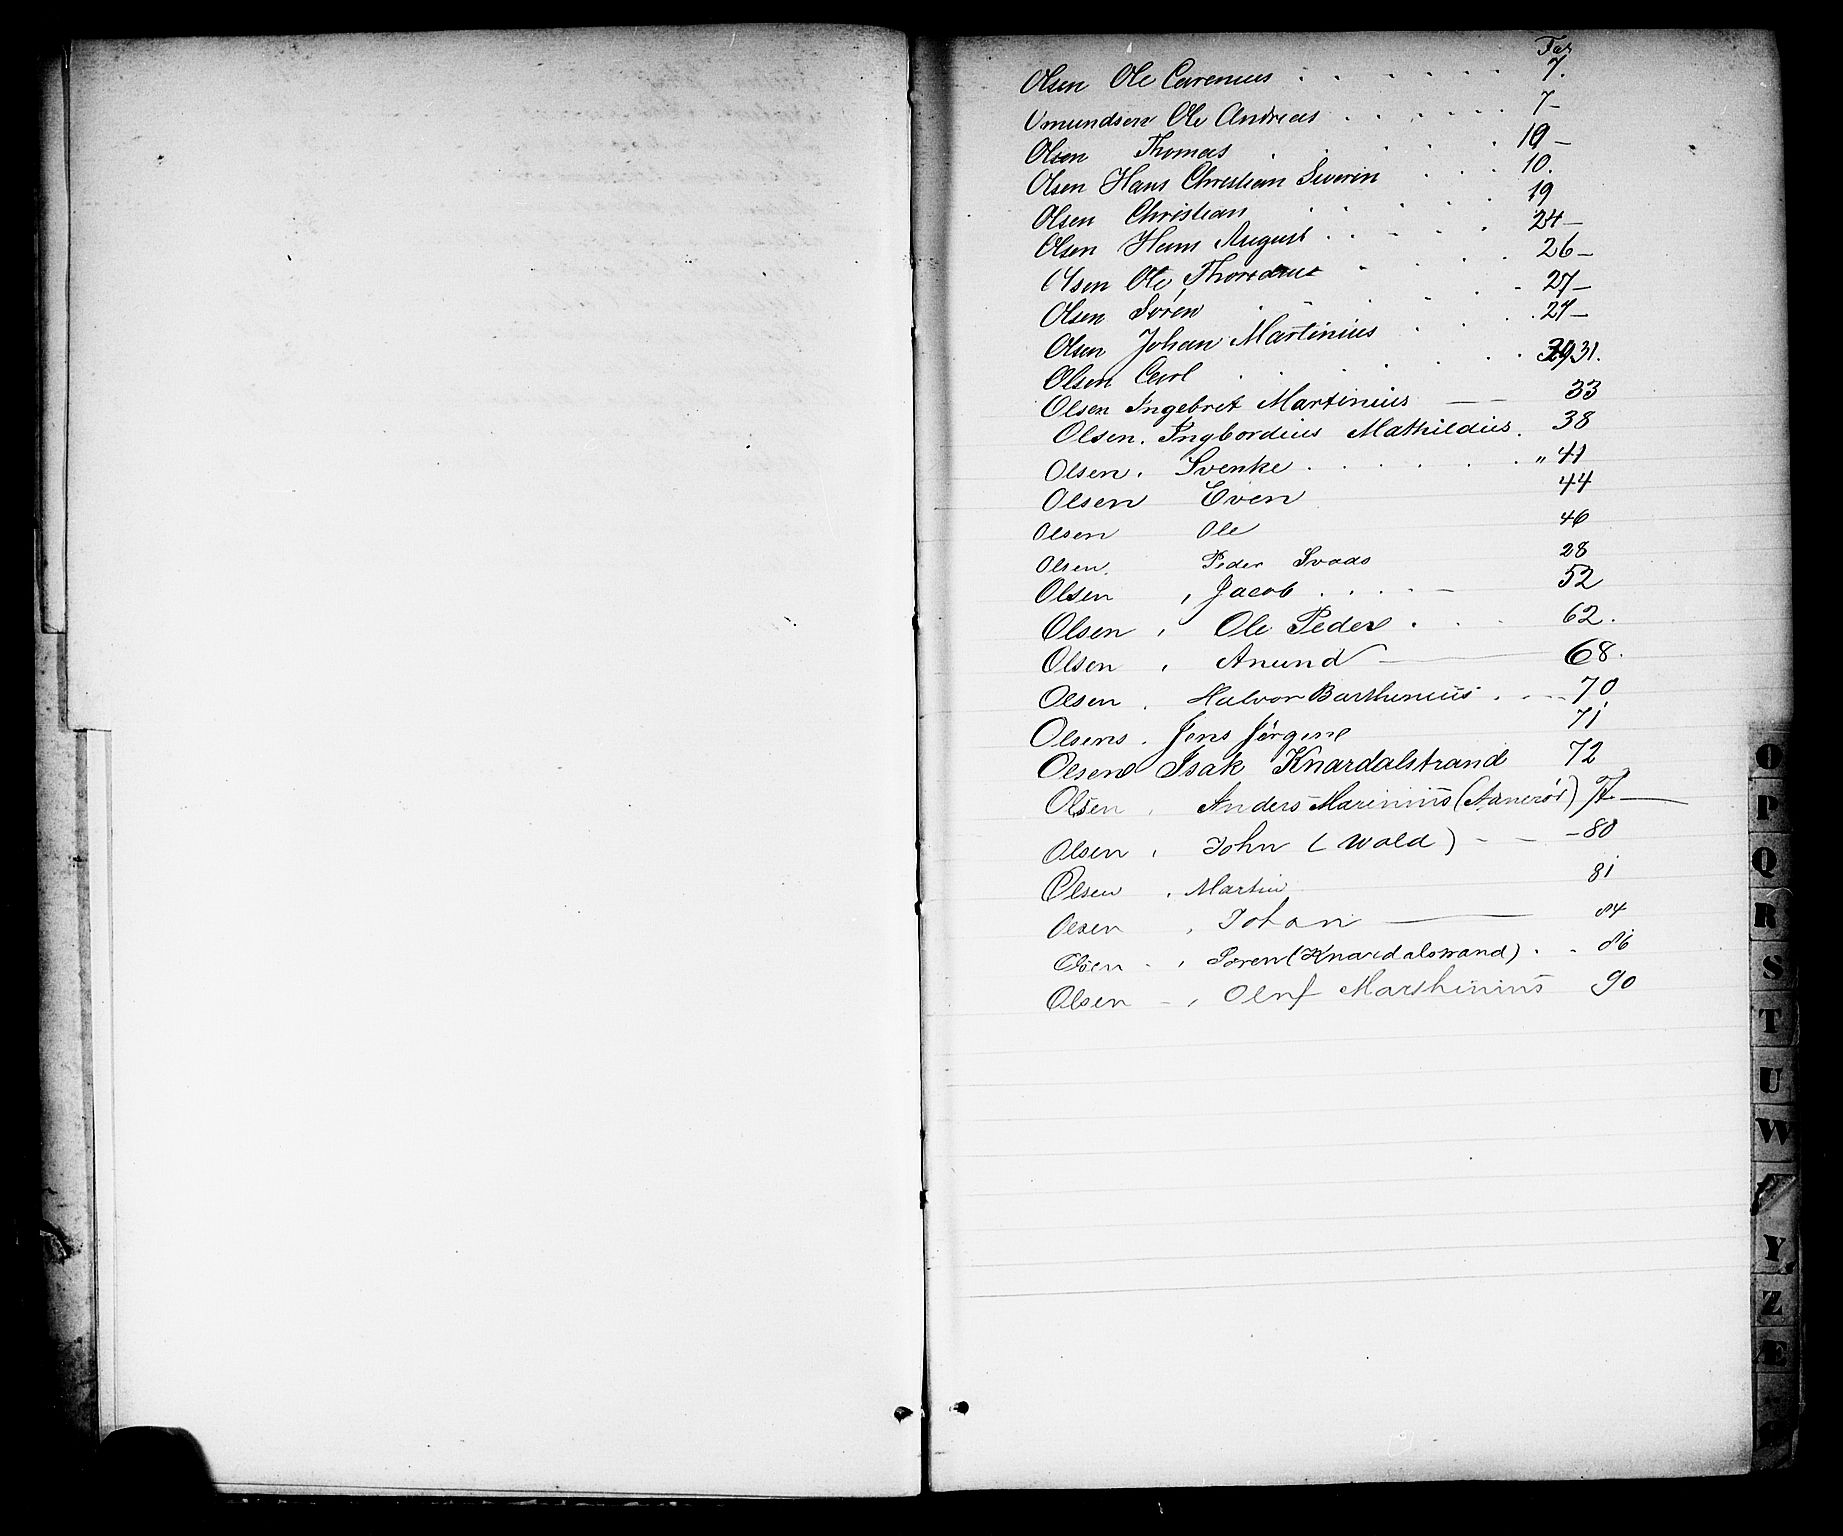 Olsen Ole Carenius . . . . . . 7.
Omundsen Ole Andreas . . . . . . 7-
Olsen Thomas . . . . . 19-
Olsen Hans Christian Severin . . . 10.
Olsen Christian . . . . . 19
Olsen Hans August . . . . . 24-
Olsen Ole . . . 26-
Olsen Søren . . . . . 27-
Olsen Johan Martinius . . . 27-
Olsen Carl . . . . . . 31.
Olsen Ingebret Martinius — — 33
Olsen. Ingbordius Mathildius. 38
Olsen. Svenke . . . . . . " 41
Olsen Even 44
Olsen Ole 46
Olsen. Peder Svads 28
Olsen , Jacob . . . . - 52
Olsen , Ole Peder . . . 62.
Olsen , Anund — 68.
Olsen . Halvor Barthinius . . . 70
Olsens . Jens Jørgen 71
Olsen Isak Knardalstrand 72
Olsen , Anders Marinius (Aanerød) 77 —
Olsen , John (Wold) - - - 80
Olsen , Martin 81
Olsen , Johan — 84
Olsen - , Søren (Knardalstrand) . . 86
Olsen - , Oluf Marthinius 90
O
P
Q
R
S
T
U
W
Y
Z
Æ